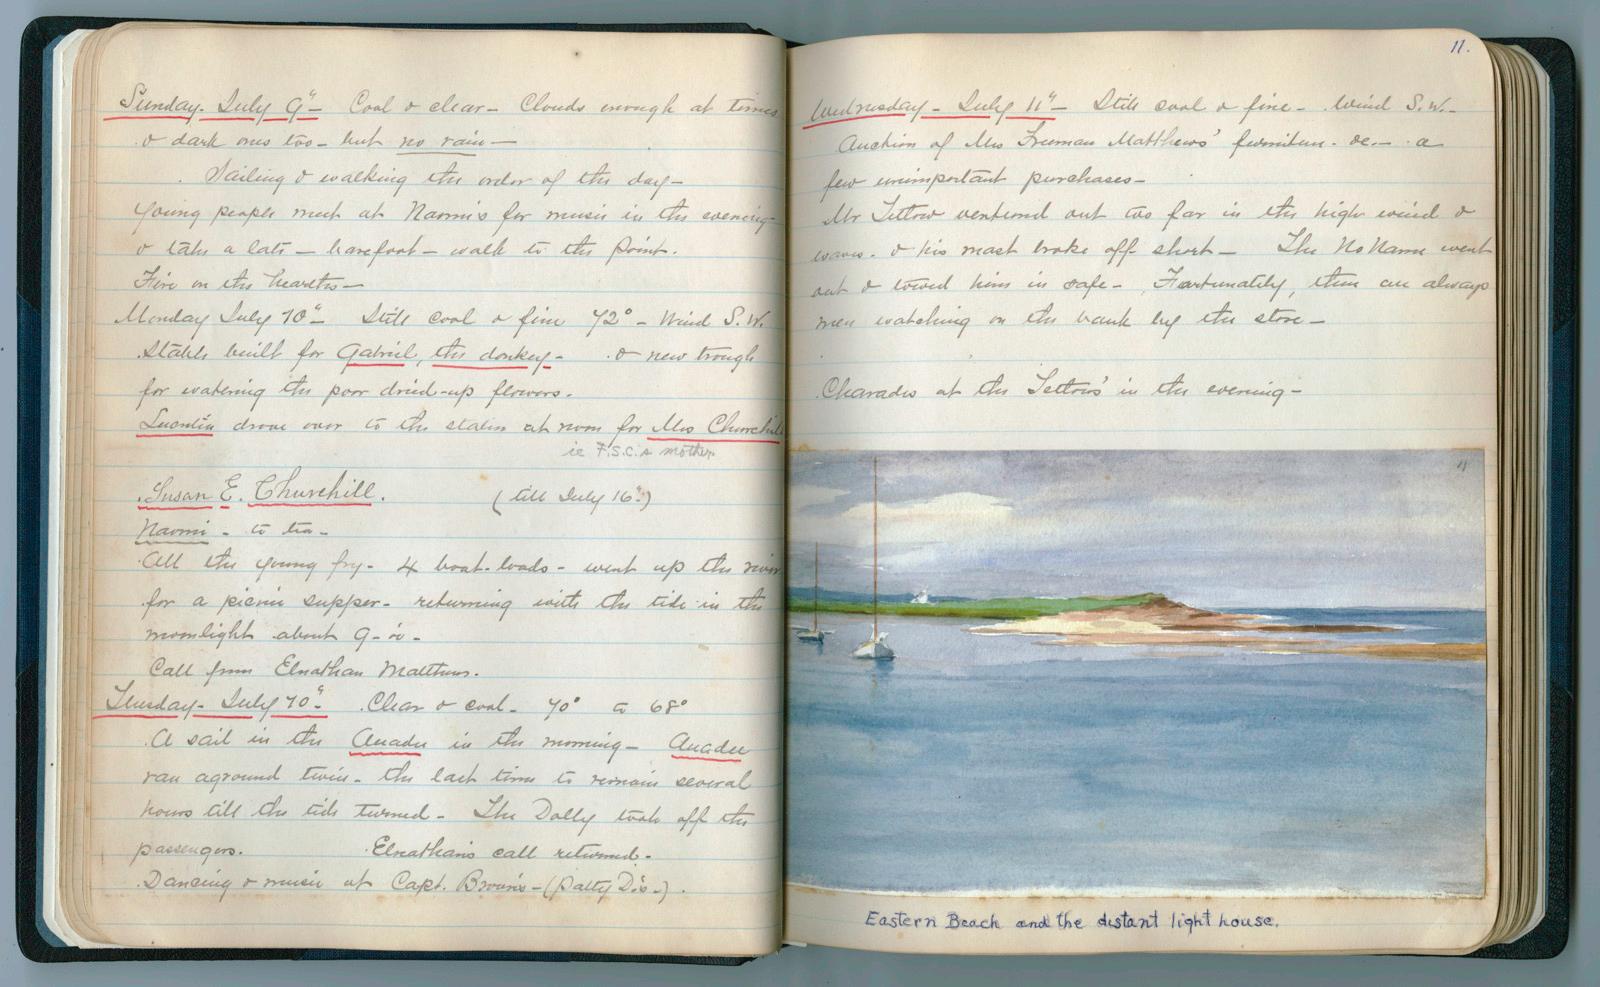 Sunday - July 9" - Cool & clear - Clouds enough at times
& dark ones too - but no rain -
Sailing & walking the order of the day -
Young people meet at Naomi's for music in the evening -
& take a late - barefoot - walk to the Point.
Fire on the hearth -
Monday July 10" - Still cool & fine 72° - Wind S.W.
Stable built for Gabriel, the donkey - & new trough
for watering the poor dried-up flowers.
Quentin drove over to the station at noon for Mrs Churchill
ie F.S.C.s mother.
Susan E. Churchill. (till July 16".)
Naomi - to tea -
All the young fry - 4 boat-loads - went up the river
for a picnic supper - returning with the tide in the
moonlight about 9 -
Call from Elnathan Matthews.
Tuesday - July 10" - Clear & cool - 70° to 68°
A sail in the in the morning -
ran aground twice - the last time to remain several
hours till the tide turned - The Dolly took off the
passengers. Elnathan's call returned -
Dancing & music at Capt. Brown's - (Patty D's -).
11.
Wednesday - July 11" - Still cool & fine - Wind S.W. -
Auction of Mrs Freeman Matthews' furniture - &c. - a
few unimportant purchases -
Mr Tettow ventured out too far in the high wind &
waves - & his mast broke off short - The No Name went
out & towed him in safe - Fortunately, there are always
men watching on the bank by the store -
Charades at the Tettows' in the evening -
11
Eastern Beach and the distant light house.